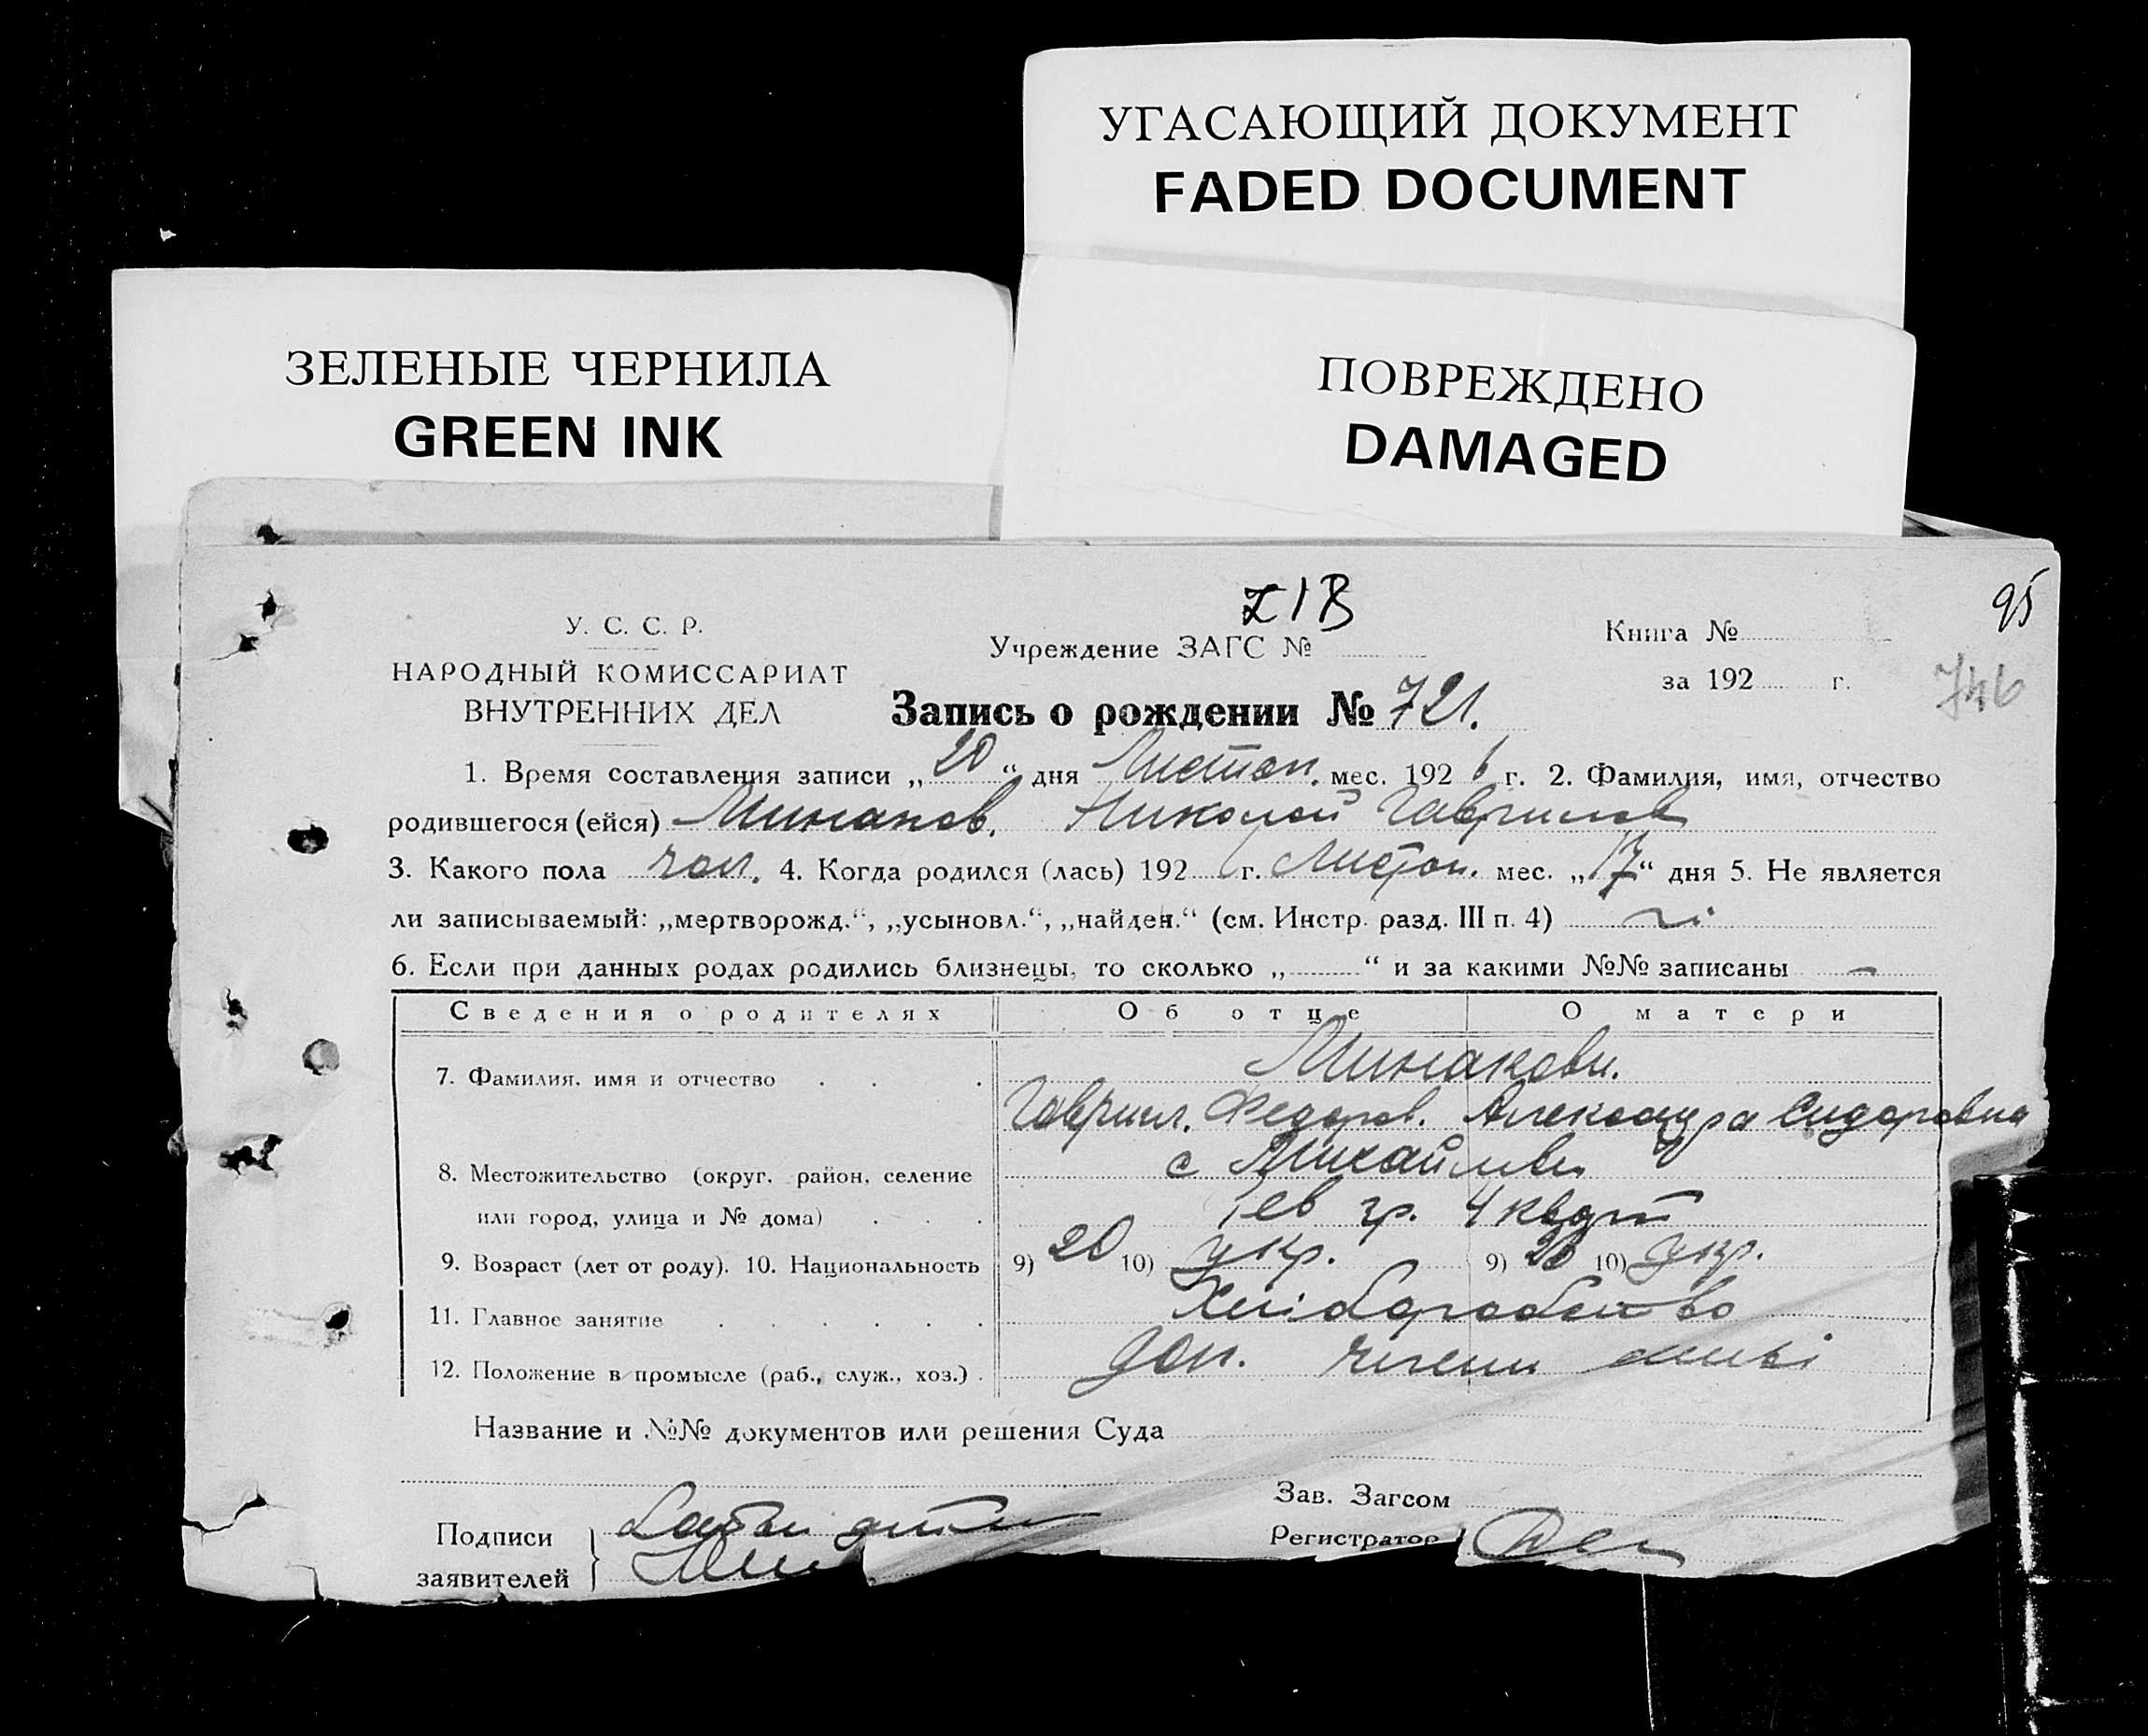 УГАСАЮЩИЙ ДОКУМЕНТ
FADED DOCUMENT
ЗЕЛЕНЫЕ ЧЕРНИЛА
GREEN INK
ПОВРЕЖДЕНО
DAMAGED
95
746
У. С. С. Р.
НАРОДНЫЙ КОМИССАРИАТ
ВНУТРЕННИХ ДЕЛ
Учреждение ЗАГС №
Книга №
за 192 г.
Запись о рождении № 721.
1. Время составления записи „20“ дня Листоп. мес. 1926 г. 2. Фамилия, имя, отчество
родившегося (ейся) Минаков. Николай Гаврилов
3. Какого пола чол. 4. Когда родился (лась) 192 6 г. Листоп. мес. „17“ дня 5. Не является
ли записываемый: „мертворожд.“, „усыновл.“, „найден.“ (см. Инстр. разд. III п. 4) ні
6. Если при данных родах родились близнецы, то сколько „ “ и за какими №№ записаны —
Сведения о родителях Об отце О матери
7. Фамилия, имя и отчество Минакови.
Гаврил. Федоров. Александра Сидоровна
8. Местожительство (округ. район, селение с Михайлівки
или город, улица и № дома) гр. 4 кварт
9. Возраст (лет от роду). 10. Национальность 9) 20 10) укр. 9) 20 10) укр.
11. Главное занятие Хліборобство
12. Положение в промысле (раб., служ., хоз.) доп. члени
Название и №№ документов или решения Суда
Зав. Загсом
Подписи Батьки
Регистратор
заявителей